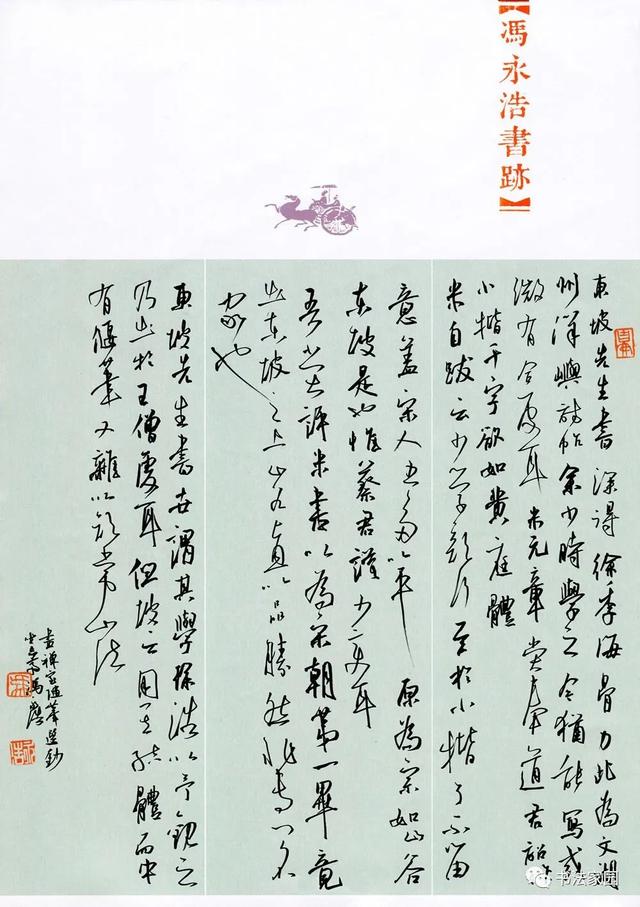 【馮永浩書跡】
東坡先生書深得徐季海骨力此為文湖
州洋嶼詩帖余少時學之今猶能寫或
微有合處耳米元章嘗奉道君詔作
小楷千字欲如黃庭體
米自跋云少學顏行至於小楷了不留
意蓋宋人書多以平原為宗如山谷
東坡是也惟蔡君謨少變耳
吾嘗評米書以為宋朝第一畢竟
出東坡之上山谷直以品勝然非專門名
家也
東坡先生書世謂其學徐浩以予觀之
乃出於王僧虔耳但坡公用其結體而中
有偃筆又雜以顏常山法
畫禪室隨筆選鈔
馮
书法家园